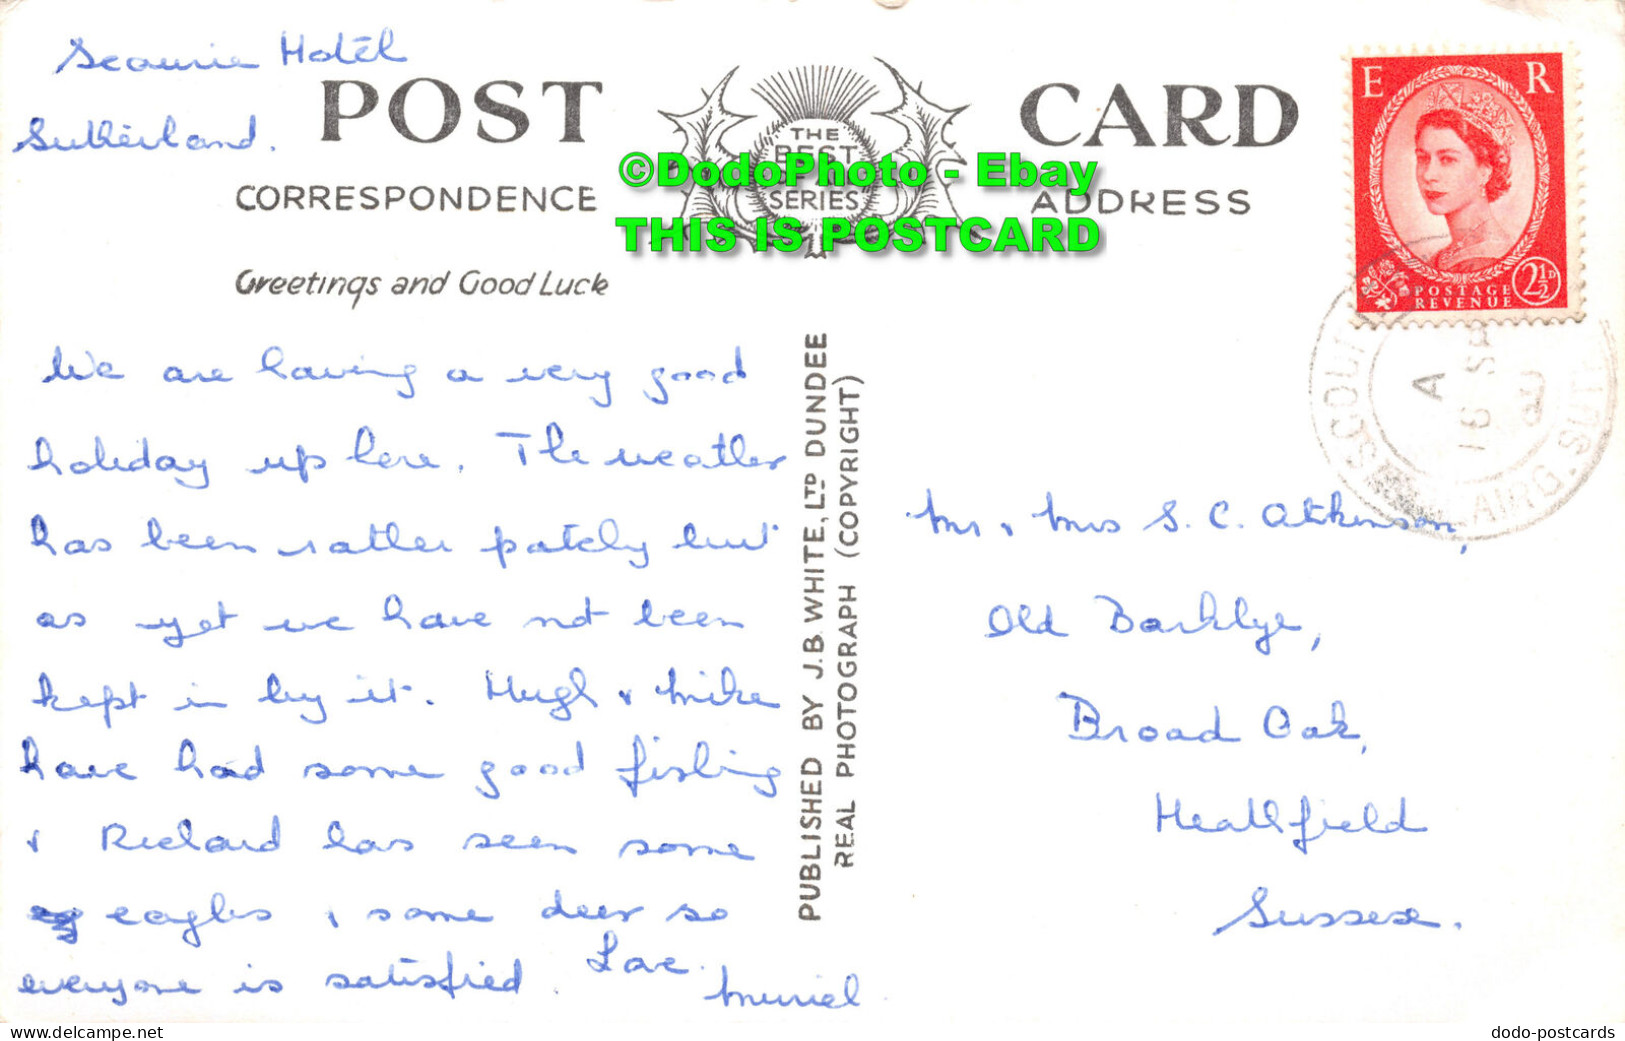 Scourie Hotel
Sutherland.
POST CARD
THE
BEST
OF ALL
SERIES
CORRESPONDENCE
ADDRESS
©DodoPhoto - Ebay
THIS IS POSTCARD
Greetings and Good Luck
E R
POSTAGE
REVENUE
2½D
A
16 SP
LAIRG. SUTH
We are having a very good
holiday up here. The weather
has been rather patchy but
as yet we have not been
kept in by it. Hugh & Mike
have had some good fishing
& Richard has seen some
eagles & some deer so
everyone is satisfied. Love.
Muriel
PUBLISHED BY J.B. WHITE, LTD DUNDEE
REAL PHOTOGRAPH (COPYRIGHT)
Mr & Mrs S. C. Atkinson,
Old Barklye,
Broad Oak,
Heathfield
Sussex.
www.delcampe.net
dodo-postcards